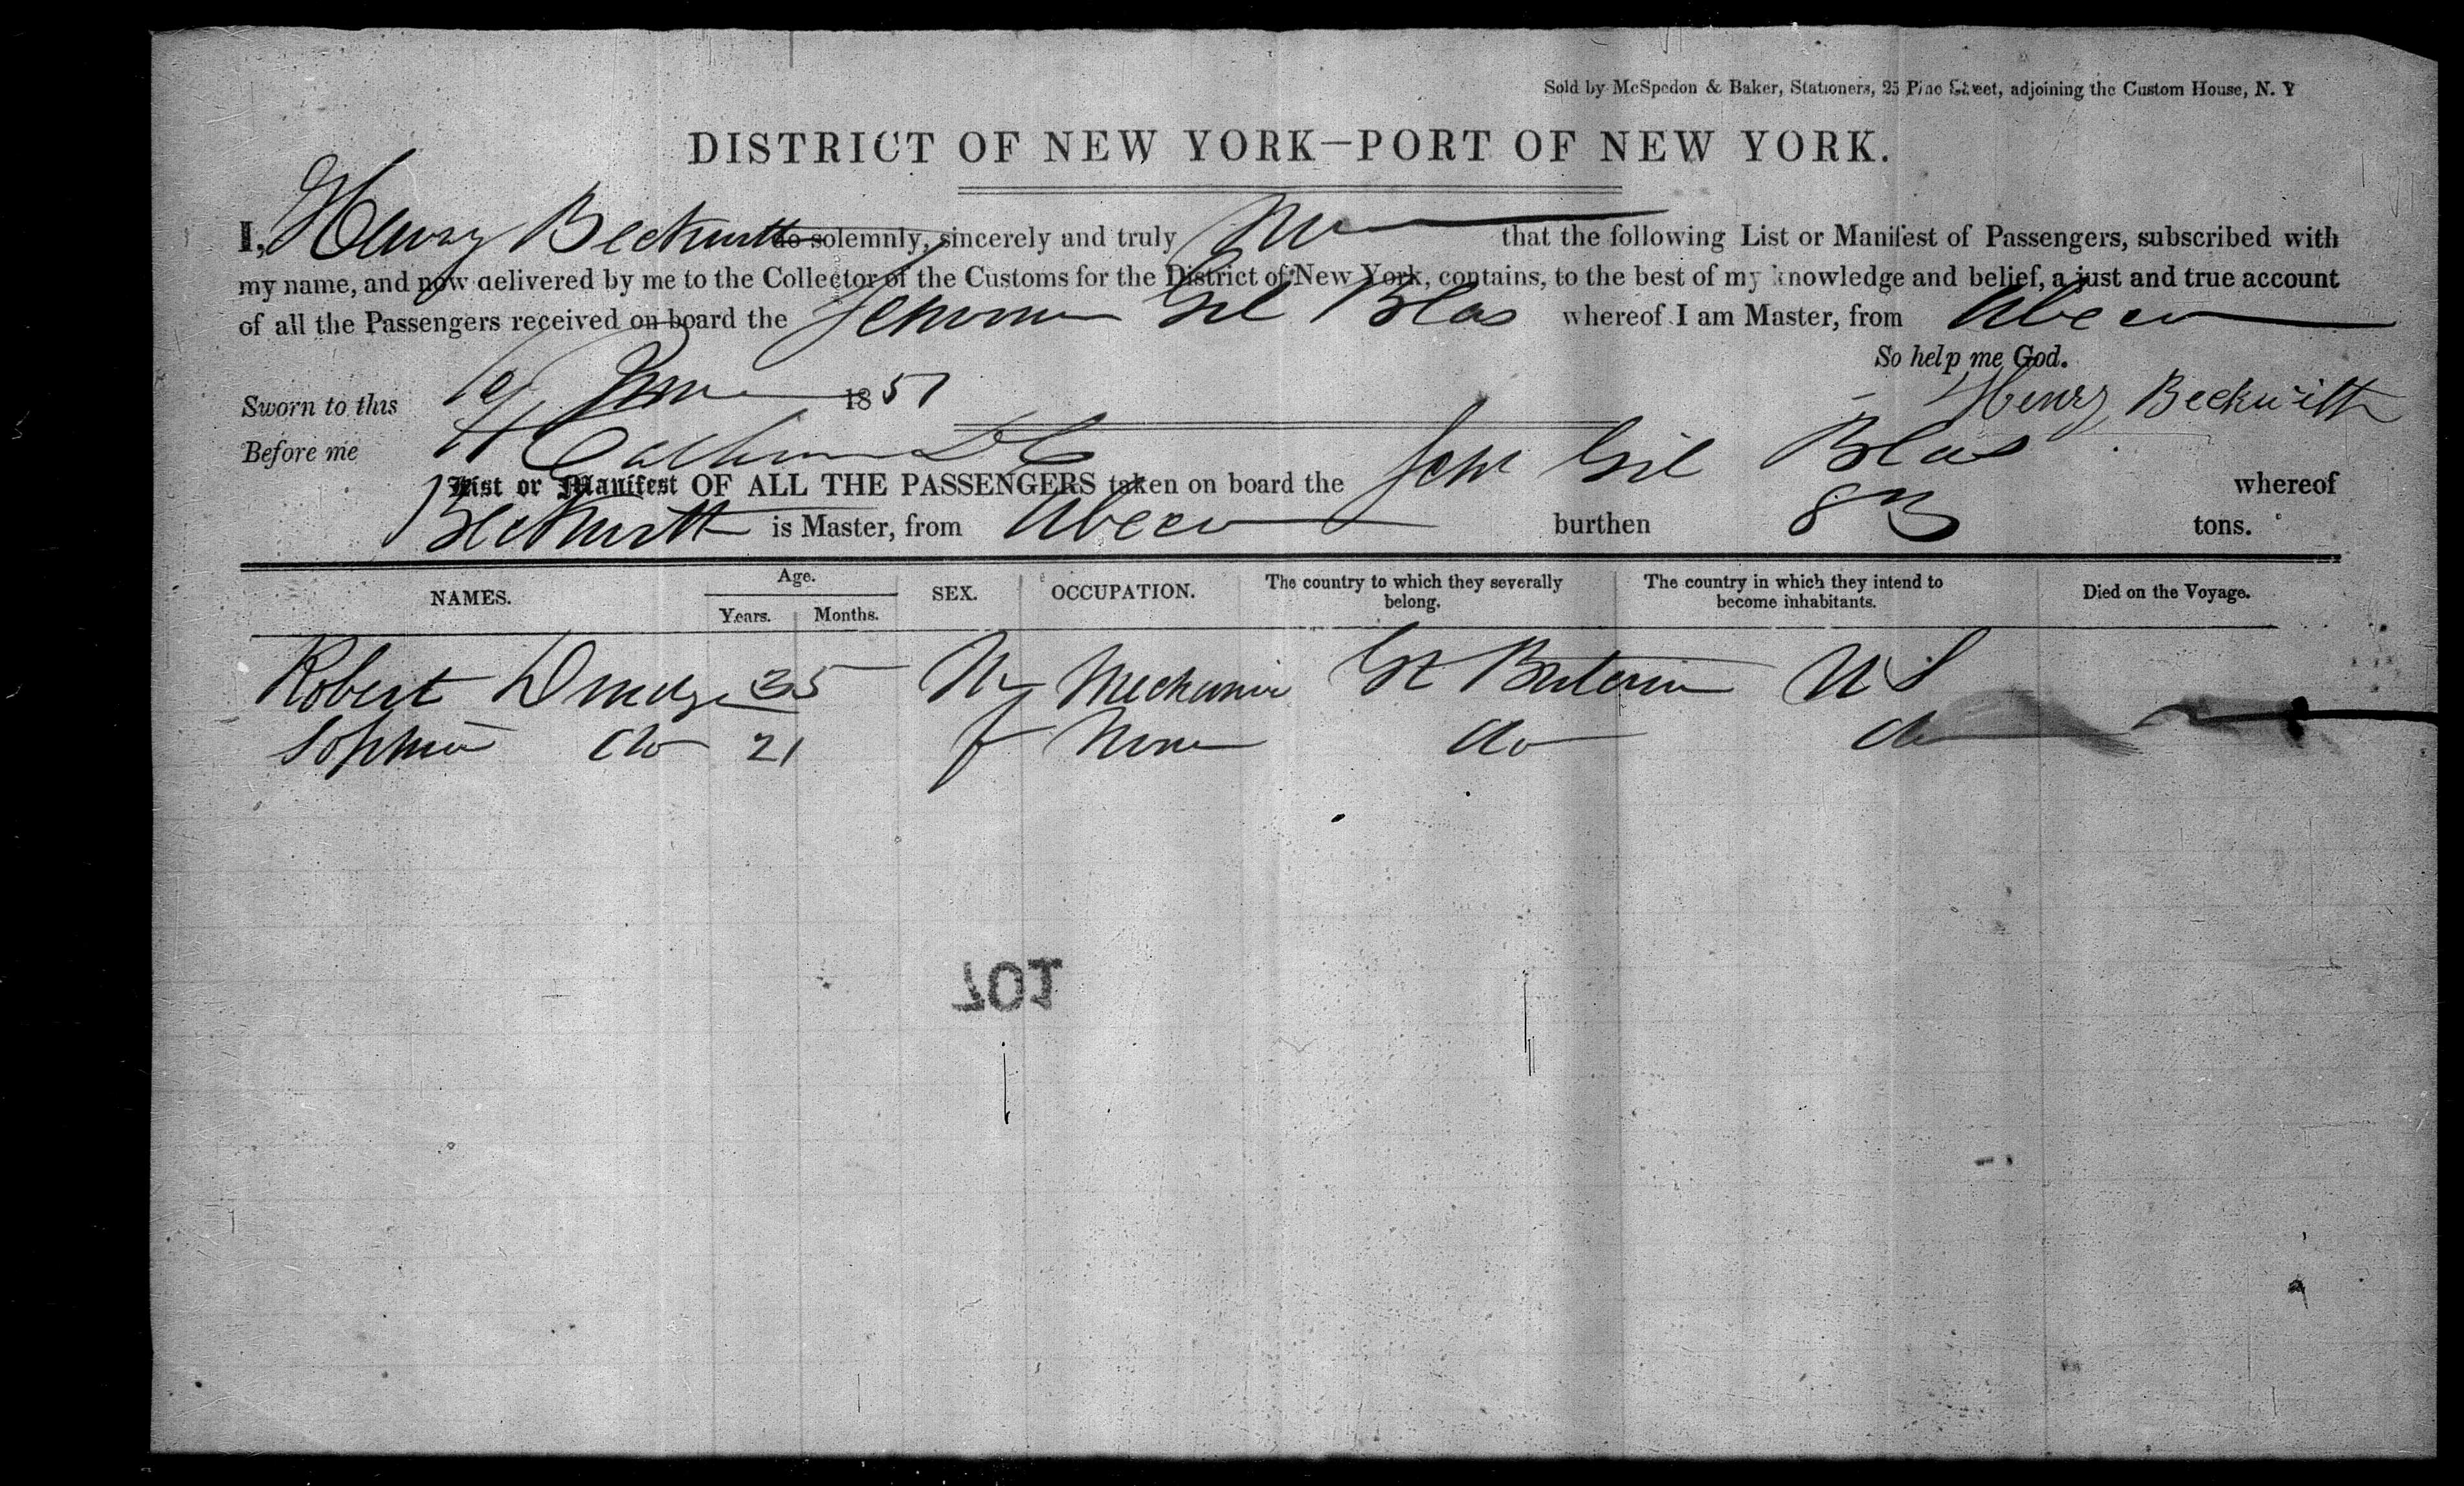 Sold by McSpedon & Baker, Stationers, 25 Pine Street, adjoining the Custom House, N. Y
DISTRICT OF NEW YORK—PORT OF NEW YORK.
I, Henry Beckwith do solemnly, sincerely and truly that the following List or Manifest of Passengers, subscribed with
my name, and now delivered by me to the Collector of the Customs for the District of New York, contains, to the best of my knowledge and belief, a just and true account
of all the Passengers received on board the Schooner Gil Blas whereof I am Master, from
So help me God.
Sworn to this June 1851
Henry Beckwith
Before me
List or Manifest OF ALL THE PASSENGERS taken on board the Schr Gil Blas whereof
Beckwith is Master, from burthen 83 tons.
NAMES. Age. SEX. OCCUPATION. The country to which they severally belong. The country in which they intend to become inhabitants. Died on the Voyage.
Years. Months.
Robert 35 M Mechanic Gt Britain U S
Sophia do 21 f None do do
701